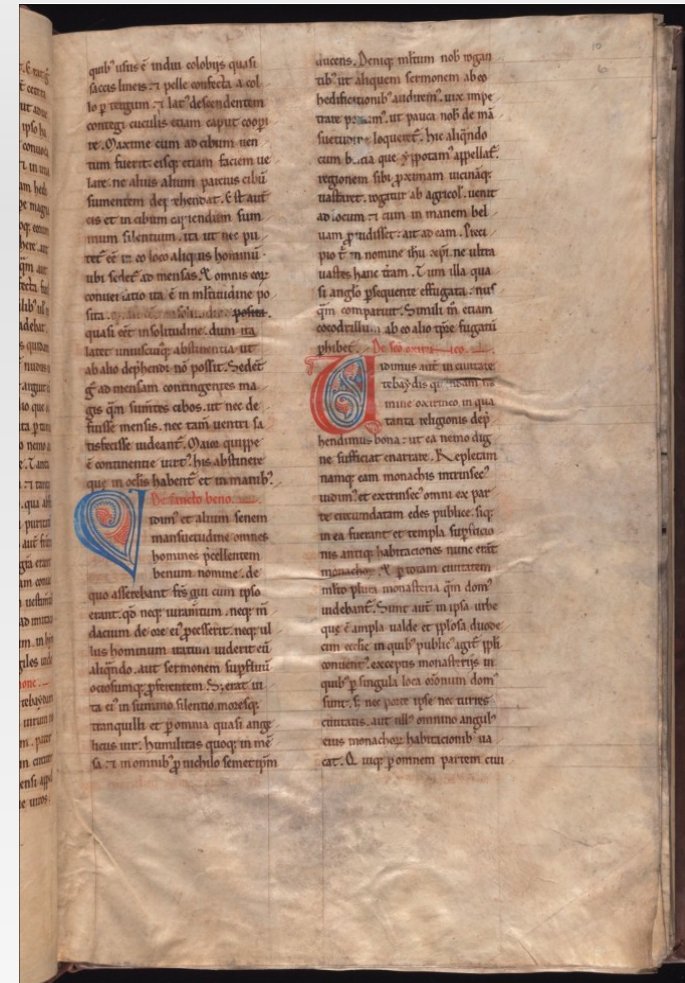 quib' usus ē indui colobijs quasi
saccis lineis. ⁊ pelle confecta a col
lo p tergum. ⁊ lat' descendentem
contegi cuculis etiam caput coopi
re. Maxime cum ad cibum uen
tum fuerit. eisq; etiam faciem ue
lare. ne alius alium parcius cibū
sumentem dep̄rehendat. Est aut̄
eis et in cibum capiendum sum
mum silentium. ita ut nec pu
tet' ēē in eo loco aliquis hominū
ubi sedet' ad mensas. ⁊ omnis eoꝝ
conuersatio ita ē in m̄ltitudine po
sita.
quasi eēt in solitudine. dum ita
latet uniuscuiq; abstinentia ut
ab alio dep̄hendi nō possit. Sedēt
g ad mensam contingentes ma
gis qm̄ sumētes cibos. ut nec de
fuisse mensis. nec tam̄ uentri sa
tisfecisse uideant̄. Maior quippe
ē continentie uirt'. his abstinere
que in oc̄lis habent̄ et in manib'.
De sancto beno.
Vidim' et alium senem
mansuetudine omnes
homines p̄cellentem
benum nomine. de
quo asserebant frs̄ qui cum ipso
erant. qd̄ neq; iuram̄tum. neq; m̄
dacium de ore ei' p̄cesserit. neq; ul
lus hominum iratum uiderit eū
aliqn̄do. aut sermonem sup̄fluū
ociosumq; p̄ferentem. S; erat ui
ta ei' in summo silentio. moresq;
tranquilli et p omnia quasi ange
licus uir. humilitas quoq; in mē
sa. ⁊ in omnib' p nichilo semetip̄m
ducens. Deniq; m̄ltum nob̄ rogan
tib' ut aliquem sermonem ab eo
hedificationib' audirem'. uix impe
trare ut pauca nob̄ de mā
suetudine loqueret̄. hic aliqn̄do
cum que ypotam' appellat̄.
regionem sibi p̄ximam uicināq;
uastaret. rogatur ab agricol'. uenit
ad locum. ⁊ cum inmanem bel
uam p̄uidisset. ait ad eam. Preci
pio t̄ in nomine ih̄u xp̄i. ne ultra
uastes hanc t̄ram. Tum illa qua
si angl̄o p̄sequente effugata. nus
qm̄ comparuit. Simili m̄ etiam
cocodrillum ab eo alio tp̄re fugatū
p̄hibet̄. De sc̄o
Vidimus aut̄ in ciuitate
tebaydis quandam no
mine oxirinco. in qua
tanta religionis dep̄
hendimus bona. ut ea nemo dig
ne sufficiat enarrare. Repletam
namq; eam monachis intrinsec'
uidim' et extrinsec' omni ex par
te circumdatam. edes publice. siq;
in ea fuerant et templa sup̄sticio
nis antiq; habitaciones nunc erāt
monachoꝝ. ⁊ p totam ciuitatem
m̄lto plura monasteria qm̄ dom'
uidebant̄. Sunt aut̄ in ipsa urbe
que ē ampla ualde et pplosa duode
cim eccl̄ie in quib' public' agit̄ pp̄li
conuent'. exceptis monasterijs in
quib' p singula loca orōnum dom'
sunt. S; nec porte ipse nec turres
ciuitatis. aut null' omnino angul'
eius monachoꝝ habitacionib' ua
cat. Quiq; p omnem partem ciui